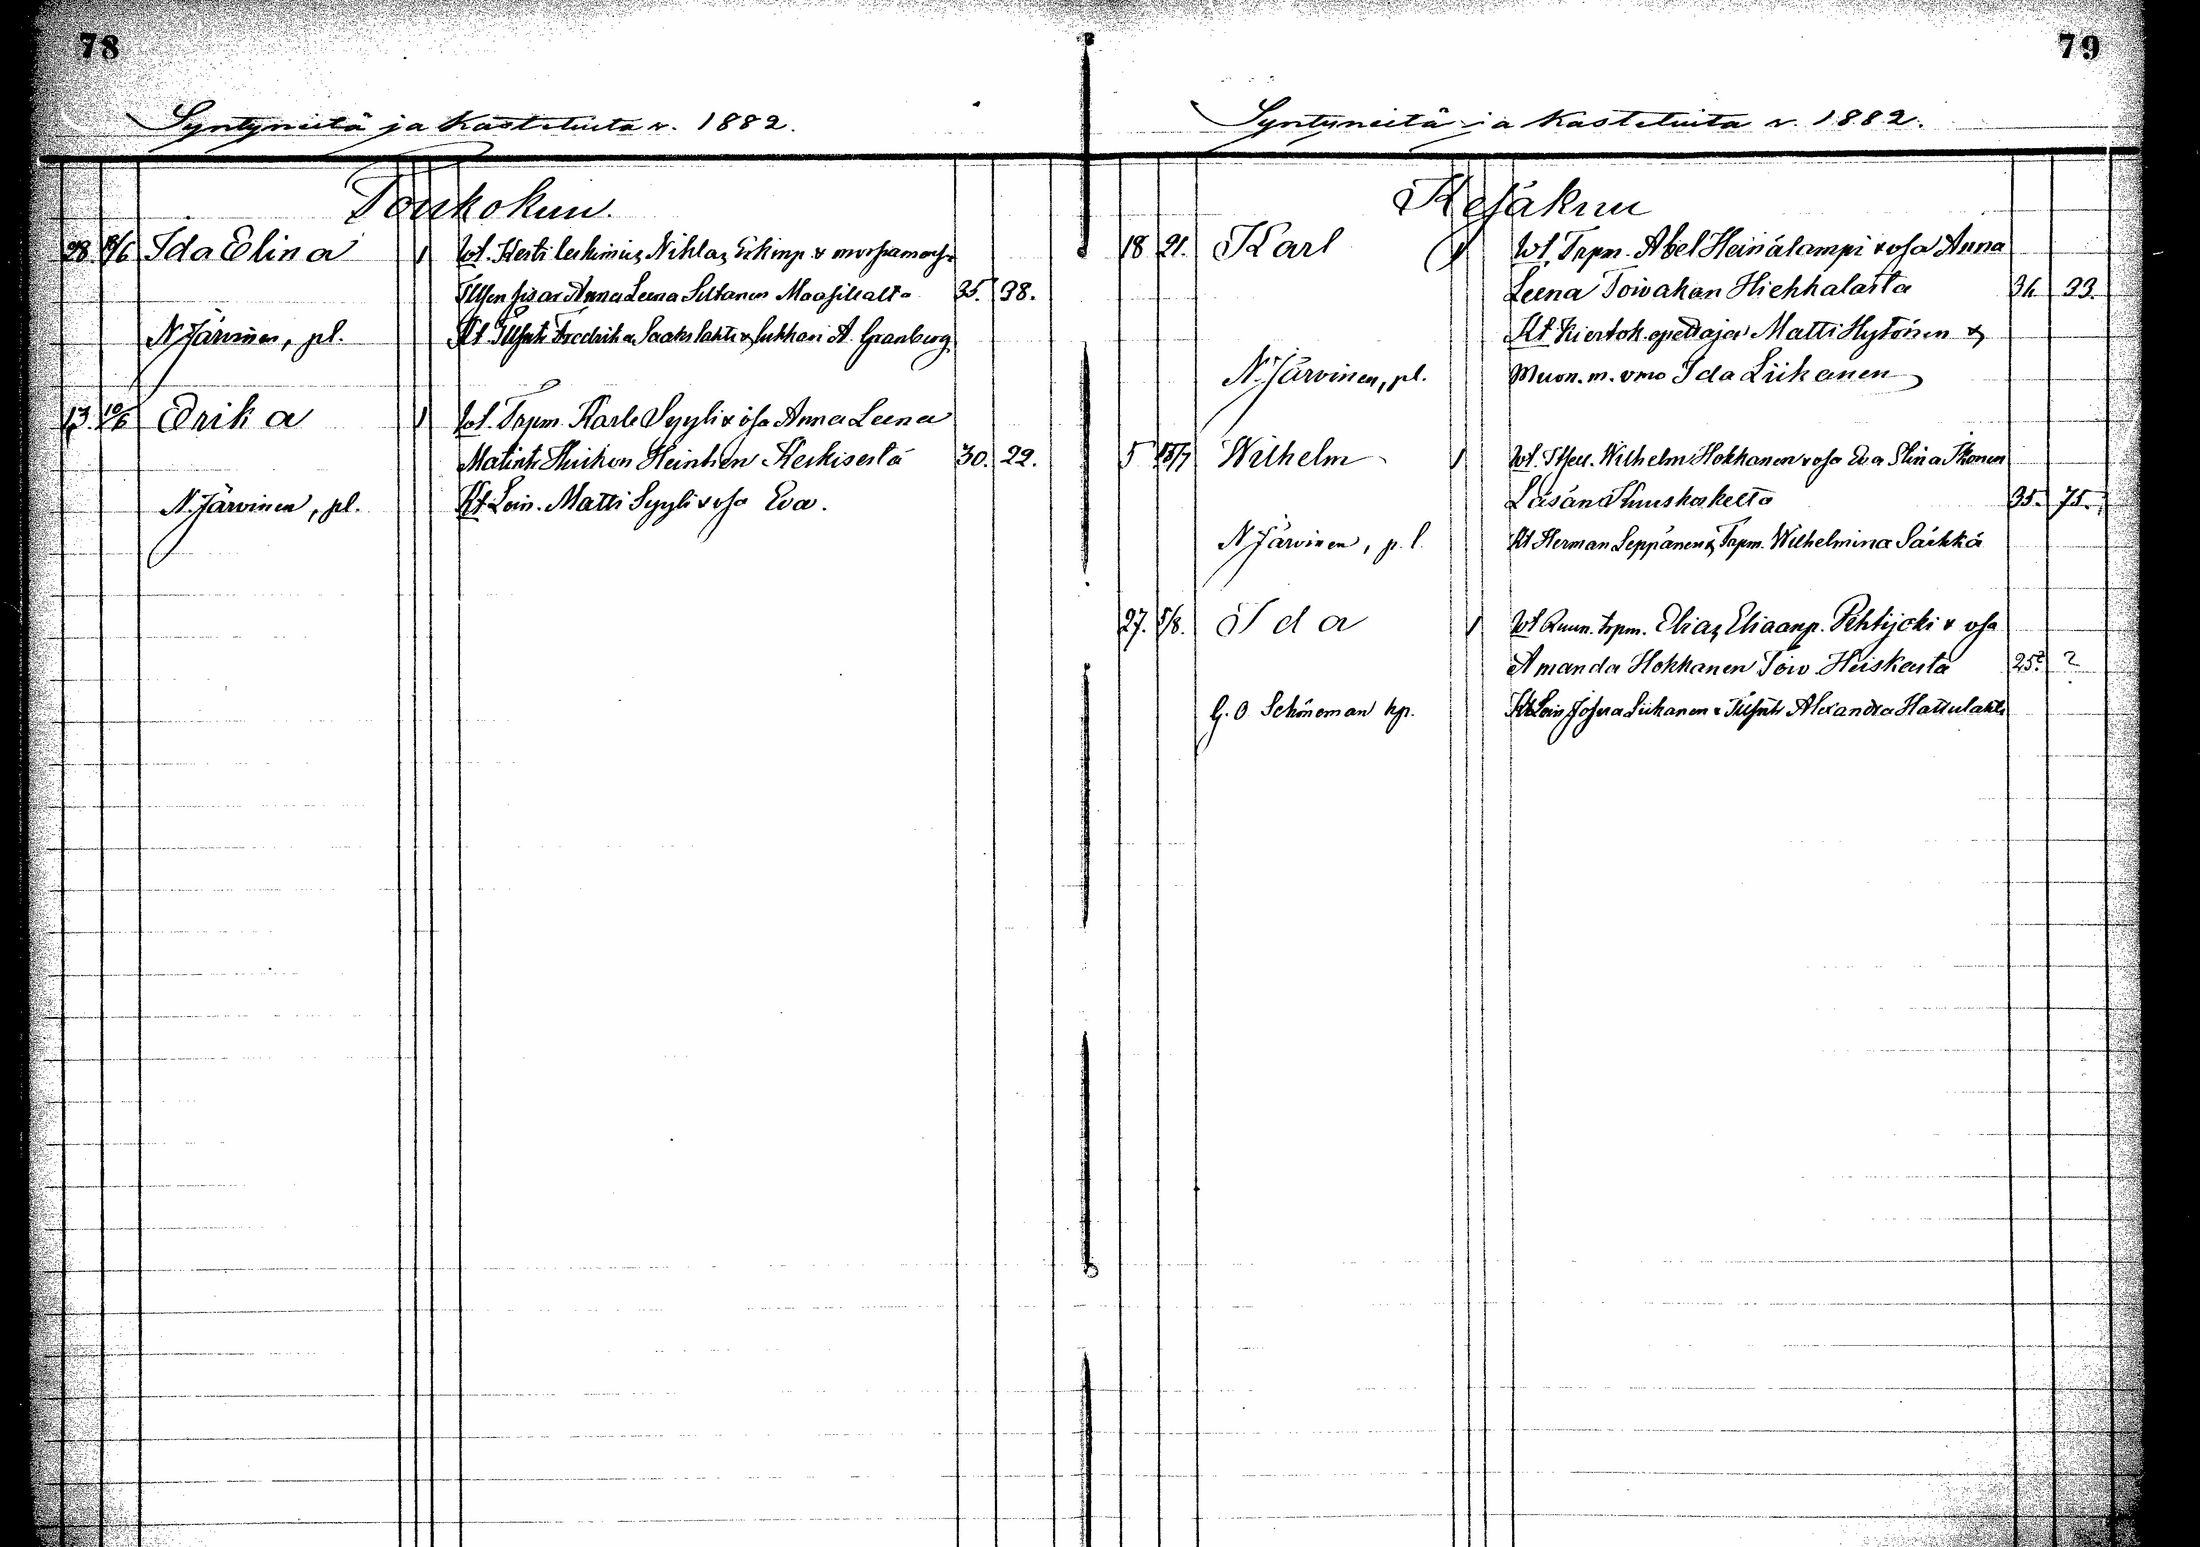 78
Syntyneitä ja kastetuita v. 1882.
Toukokuu.
28. 18/6 Ida Elina 1 Wt. Kesti leskimies Niklas Erkinp. &
Anna Leena Siltanen Maasillalta 35. 38.
N. Järvinen, pl. Kt. Fredrik Saakslahti & lukkari A. Granberg
13. 10/6 Erika 1 Wt. Trpm. Karle Syyli & vsa Anna Leena
Matint. Heinhen Keskisestä 30. 22.
N. Järvinen, pl. Kt. Lois. Matti Syyli & vsa Eva.
79
Syntyneitä ja kastetuita v. 1882.
Kesäkuu
18 21. Karl 1 Wt. Trpm. Abel Heinälampi & vsa Anna
Leena Toivakan Hiekkalasta 36 33.
Kt. Kiertok. opettaja Matti Hytönen &
N. Järvinen, pl. Muon. m. vmo Ida Liikanen
5 18/7 Wilhelm 1 Wt. Wilhelm Hokkanen & vsa Eva Stina Ikonen
Läsänä Kuuskoskelta 35. 75.
N. Järvinen, p. l. Kt Herman Seppänen & Trpm. Wilhelmina Särkkä
27. 5/8. Ida 1 Wt Ruun. trpm. Elias Eliaanp. Pehtijoki & vsa
Amanda Hokkanen Toiv. Heiskasta 25? ?
G. O. Schöneman kp. Kt. Lois Josua Liikanen & Alexandra Hattulahti